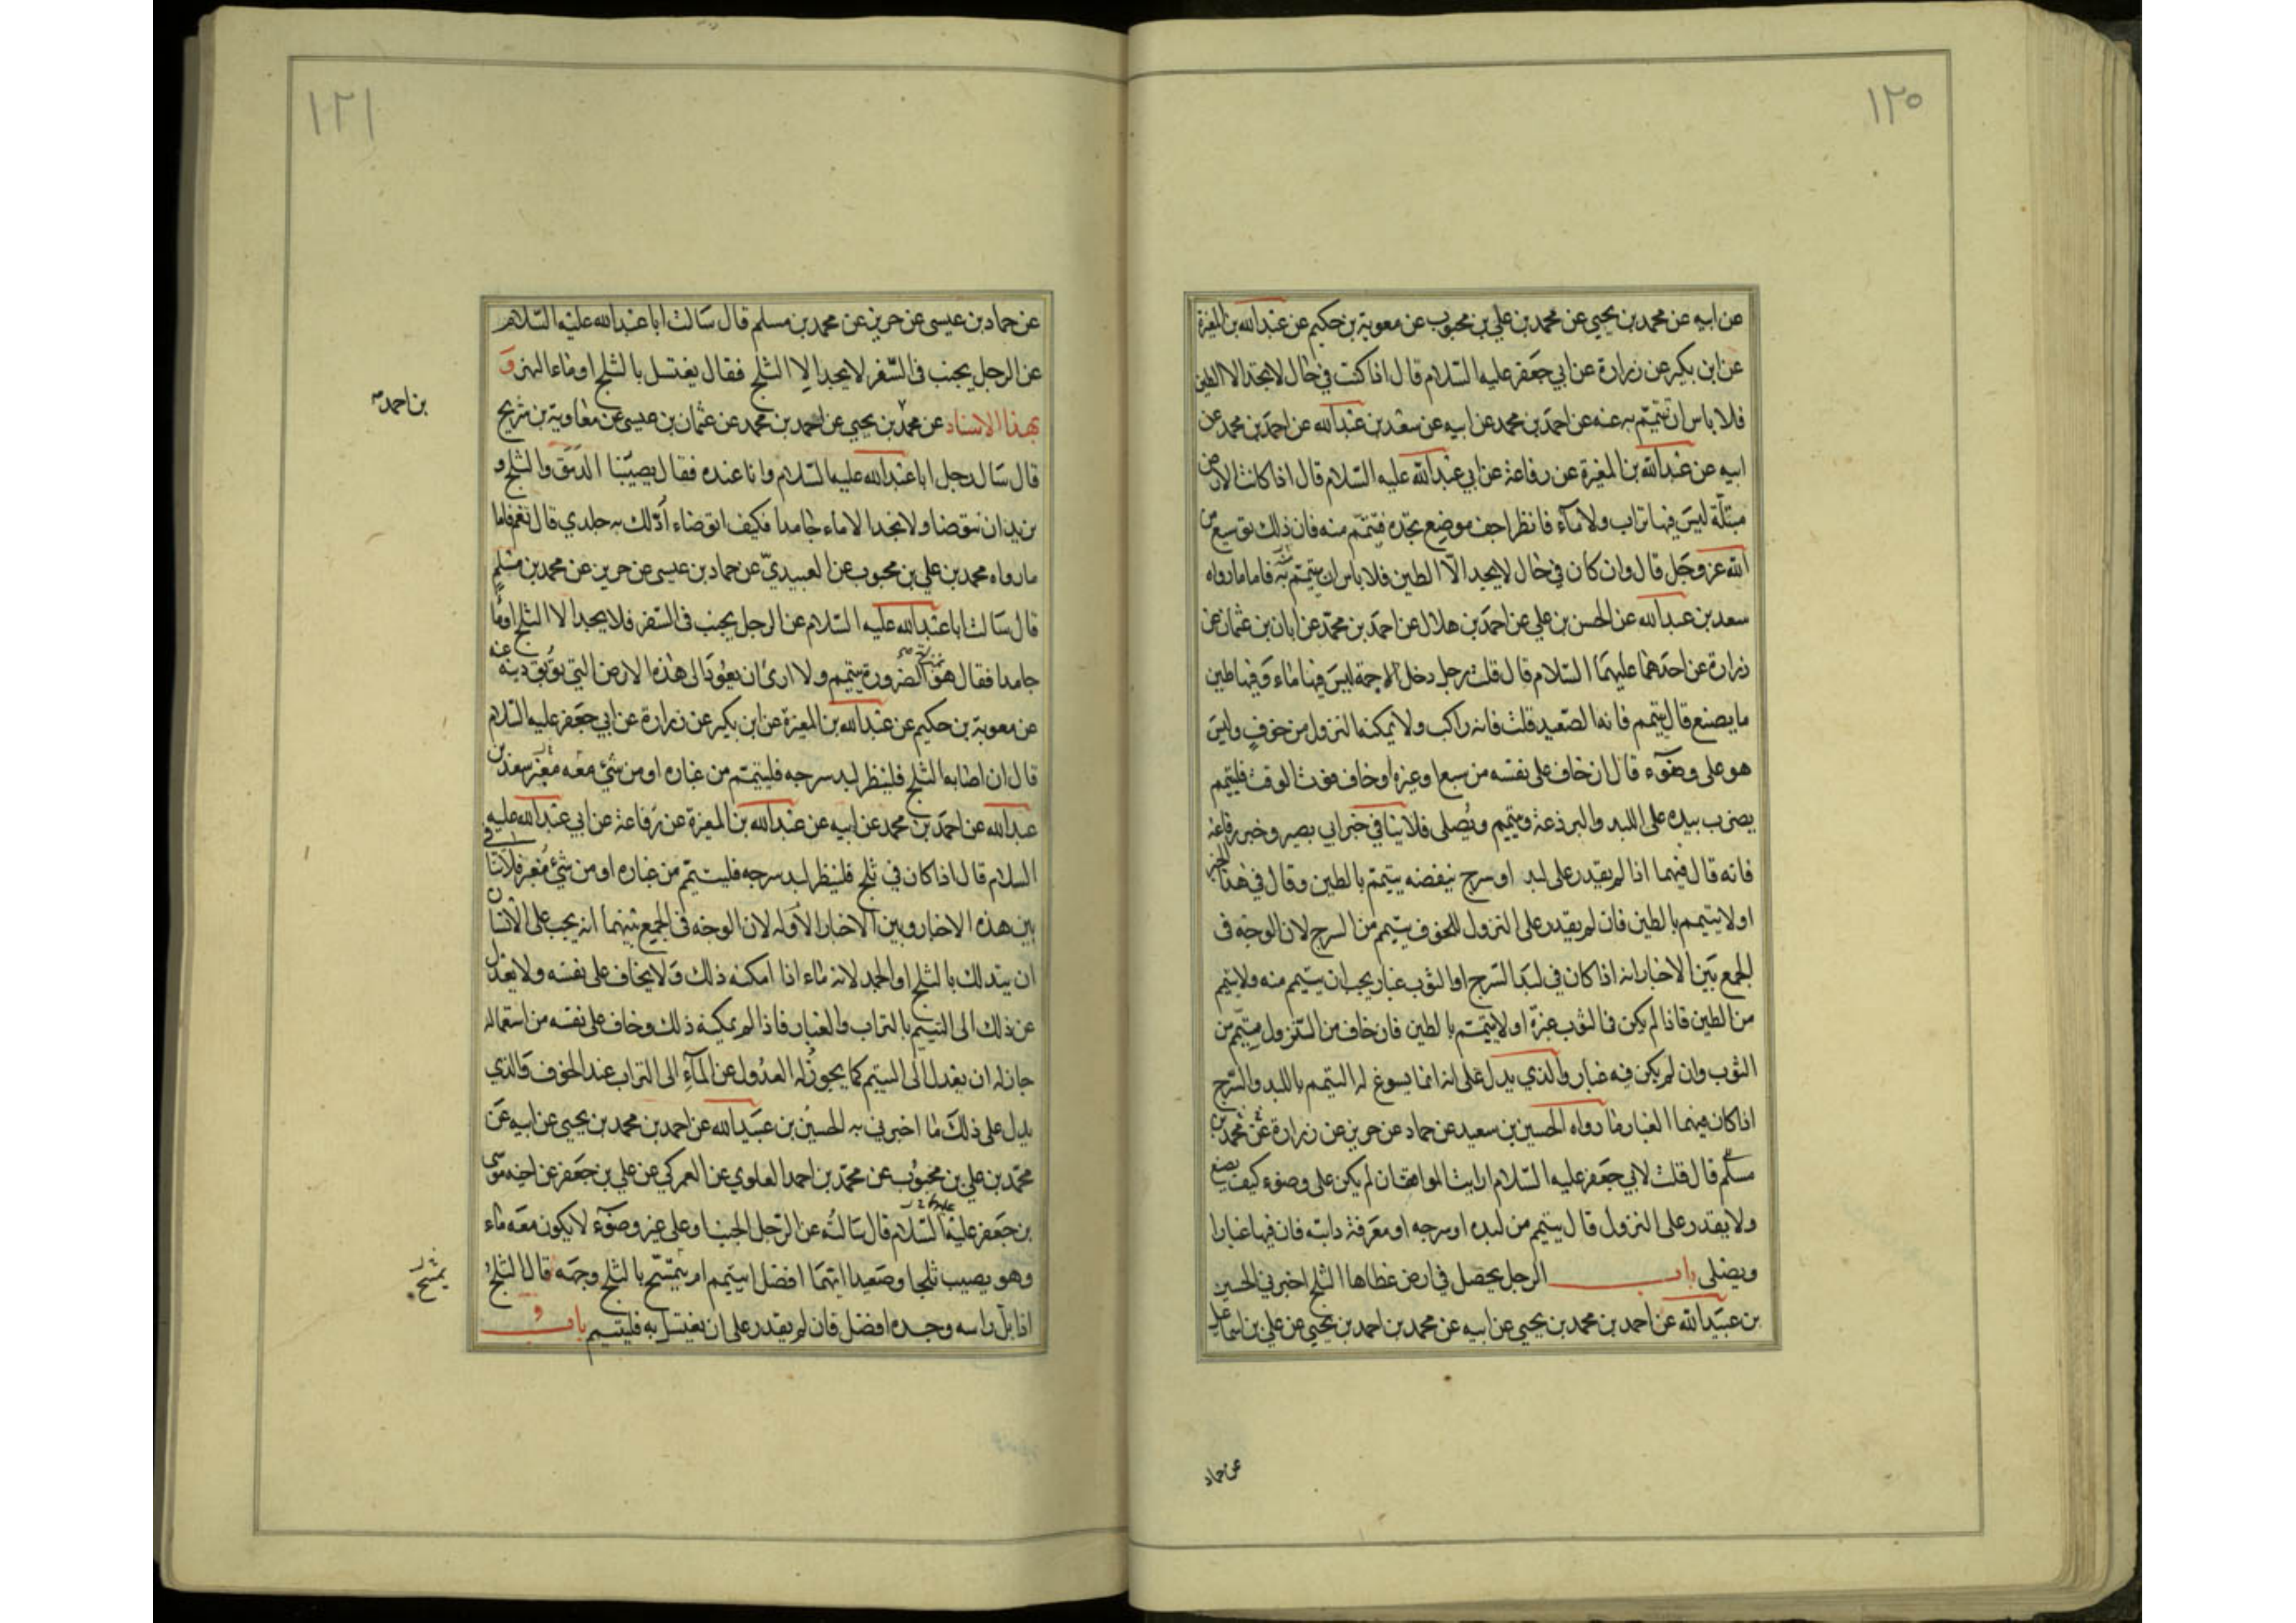 ١٢٠
عن ابيه عن محمد بن يحيى عن محمد بن علي بن محبوب عن معوية بن حكيم عن عبد الله بن المغيرة
عن ابن بكير عن زرارة عن ابي جعفر عليه السلام قال اذا كنت في حال لا تجد الا الطين
فلا باس ان تتيمم به عنه عن احمد بن محمد عن ابيه عن سعد بن عبد الله عن احمد بن محمد عن
ابيه عن عبد الله بن المغيرة عن رفاعة عن ابي عبد الله عليه السلام قال اذا كانت الارض
مبتلة ليس فيها تراب ولا ماء فانظر اجف موضع تجده فتيمم منه فان ذلك توسيع من
الله عز وجل قال وان كان في حال لا يجد الا الطين فلا باس ان يتيمم به فاما ما رواه
سعد بن عبد الله عن الحسن بن علي عن احمد بن هلال عن احمد بن محمد عن ابان بن عثمان عن
زرارة عن احدهما عليهما السلام قال قلت رجل دخل الاجمة ليس فيها ماء وفيها طين
ما يصنع قال يتيمم فانه الصعيد قلت فانه راكب ولا يمكنه النزول من خوف وليس
هو على وضوء قال ان خاف على نفسه من سبع او غيره او خاف فوت الوقت فليتيمم
يضرب بيده على اللبد والبرذعة ويتيمم ويصلى فلا ينافي خبر ابي بصير وخبر رفاعة
فانه قال فيهما اذا لم يقدر على لبد او سرج ينفضه يتيمم بالطين وقال في هذا الخبر
اولا يتيمم بالطين فان لم يقدر على النزول للخوف يتيمم من السرج لان الوجه فى
الجمع بين الاخبار انه اذا كان في لبد السرج او الثوب غبار يجب ان يتيمم منه ولا يتيمم
من الطين فاذا لم يكن فى الثوب غبرة اولا يتيمم بالطين فان خاف من النزول يتيمم من
الثوب وان لم يكن فيه غبار والذي يدل على انه انما يسوغ له التيمم باللبد والسرج
اذا كان فيهما الغبار ما رواه الحسين بن سعيد عن حماد عن حريز عن زرارة عن محمد بن
مسلم قال قلت لابي جعفر عليه السلام ارايت المواقف ان لم يكن على وضوء كيف يصنع
ولا يقدر على النزول قال يتيمم من لبده او سرجه او معرفة دابته فان فيها غبارا
ويصلى باب الرجل يحصل في ارض غطاها الثلج اخبرني الحسين
بن عبيد الله عن احمد بن محمد بن يحيى عن ابيه عن محمد بن احمد بن يحيى عن علي بن اسماعيل
عن حماد
١٢١
عن حماد بن عيسى عن حريز عن محمد بن مسلم قال سالت ابا عبد الله عليه السلام
عن الرجل يجنب فى السفر لا يجد الا الثلج فقال يغتسل بالثلج او ماء النهر و
بهذا الاسناد عن محمد بن يحيى عن احمد بن محمد عن عثمان بن عيسى عن معاوية بن شريح
بن احمد صح
قال سال رجل ابا عبد الله عليه السلام وانا عنده فقال يصيبنا الدمق والثلج و
نريد ان نتوضا ولا نجد الا ماء جامدا فكيف اتوضاء ادلك به جلدي قال نعم فاما
ما رواه محمد بن علي بن محبوب عن العبيدي عن حماد بن عيسى عن حريز عن محمد بن مسلم
قال سالت ابا عبد الله عليه السلام عن الرجل يجنب فى السفر فلا يجد الا الثلج او ماء
جامدا فقال هو بمنزلة الضرورة يتيمم ولا ارى ان يعود الى هذه الارض التي توبق دينه عنه
عن معوية بن حكيم عن عبد الله بن المغيرة عن ابن بكير عن زرارة عن ابي جعفر عليه السلام
قال ان اصابه الثلج فلينظر لبد سرجه فليتيمم من غباره او من شئ معه مغبر سعد بن
عبد الله عن احمد بن محمد عن ابيه عن عبد الله بن المغيرة عن رفاعة عن ابي عبد الله عليه
السلام قال اذا كان في ثلج فلينظر لبد سرجه فليتيمم من غباره او من شئ مغبر فلا تنافى
بين هذه الاخبار وبين الاخبار الاوله لان الوجه فى الجمع بينهما انه يجب على الانسان
ان يتدلك بالثلج او الجمد لانه ماء اذا امكنه ذلك ولا يخاف على نفسه ولا يعدل
عن ذلك الى التيمم بالتراب والغبار فاذا لم يمكنه ذلك وخاف على نفسه من استعماله
جاز له ان يعدل الى التيمم كما يجوز له العدول عن الماء الى التراب عند الخوف والذي
يدل على ذلك ما اخبرني به الحسين بن عبيد الله عن احمد بن محمد بن يحيى عن ابيه عن
محمد بن علي بن محبوب عن محمد بن احمد العلوي عن العمركي عن علي بن جعفر عن اخيه موسى
بن جعفر عليه السلام قال سالته عن الرجل الجنب او على غير وضوء لا يكون معه ماء
وهو يصيب ثلجا او صعيدا ايهما افضل ايتيمم ام يتمسح بالثلج وجهه قال الثلج
يمسح
اذا بل راسه وجسده افضل فان لم يقدر على ان يغتسل به فليتيمم باب